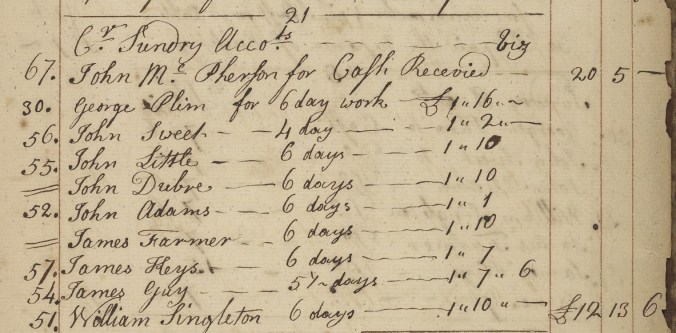 21
Cr. Sundry Accots. viz
67. John Mc Pherson for Cash Recevied — 20 5 —
30. George Plim for 6 day work £1 " 16 " ~
56. John Sweet — 4 day — 1 " 2 " —
55. John Little — 6 days — 1 " 10
= John Dubre — 6 days — 1 " 10
52. John Adams — 6 days — 1 " 1
= James Farmer — 6 days — 1 " 10
57. James Heys — 6 days — 1 " 7
54. James Guy — 5½ days — 1 " 7 " 6
51. William Singleton 6 days — 1 " 10 " — £12 13 6